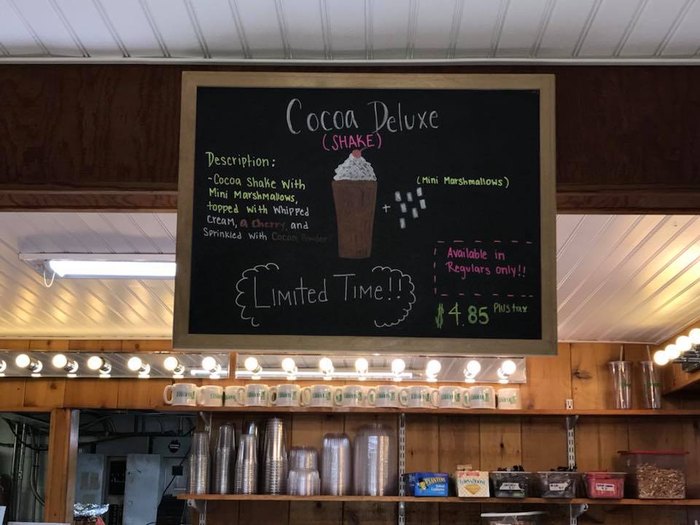 Cocoa Deluxe
(SHAKE)
Description:
-Cocoa Shake With
Mini Marshmallows,
topped with Whipped
Cream, a Cherry and
Sprinkled With Cocoa Powder
+
(Mini Marshmallows)
Available in
Regulars only!!
Limited Time!!
$4.85 Plus tax
PLANTERS